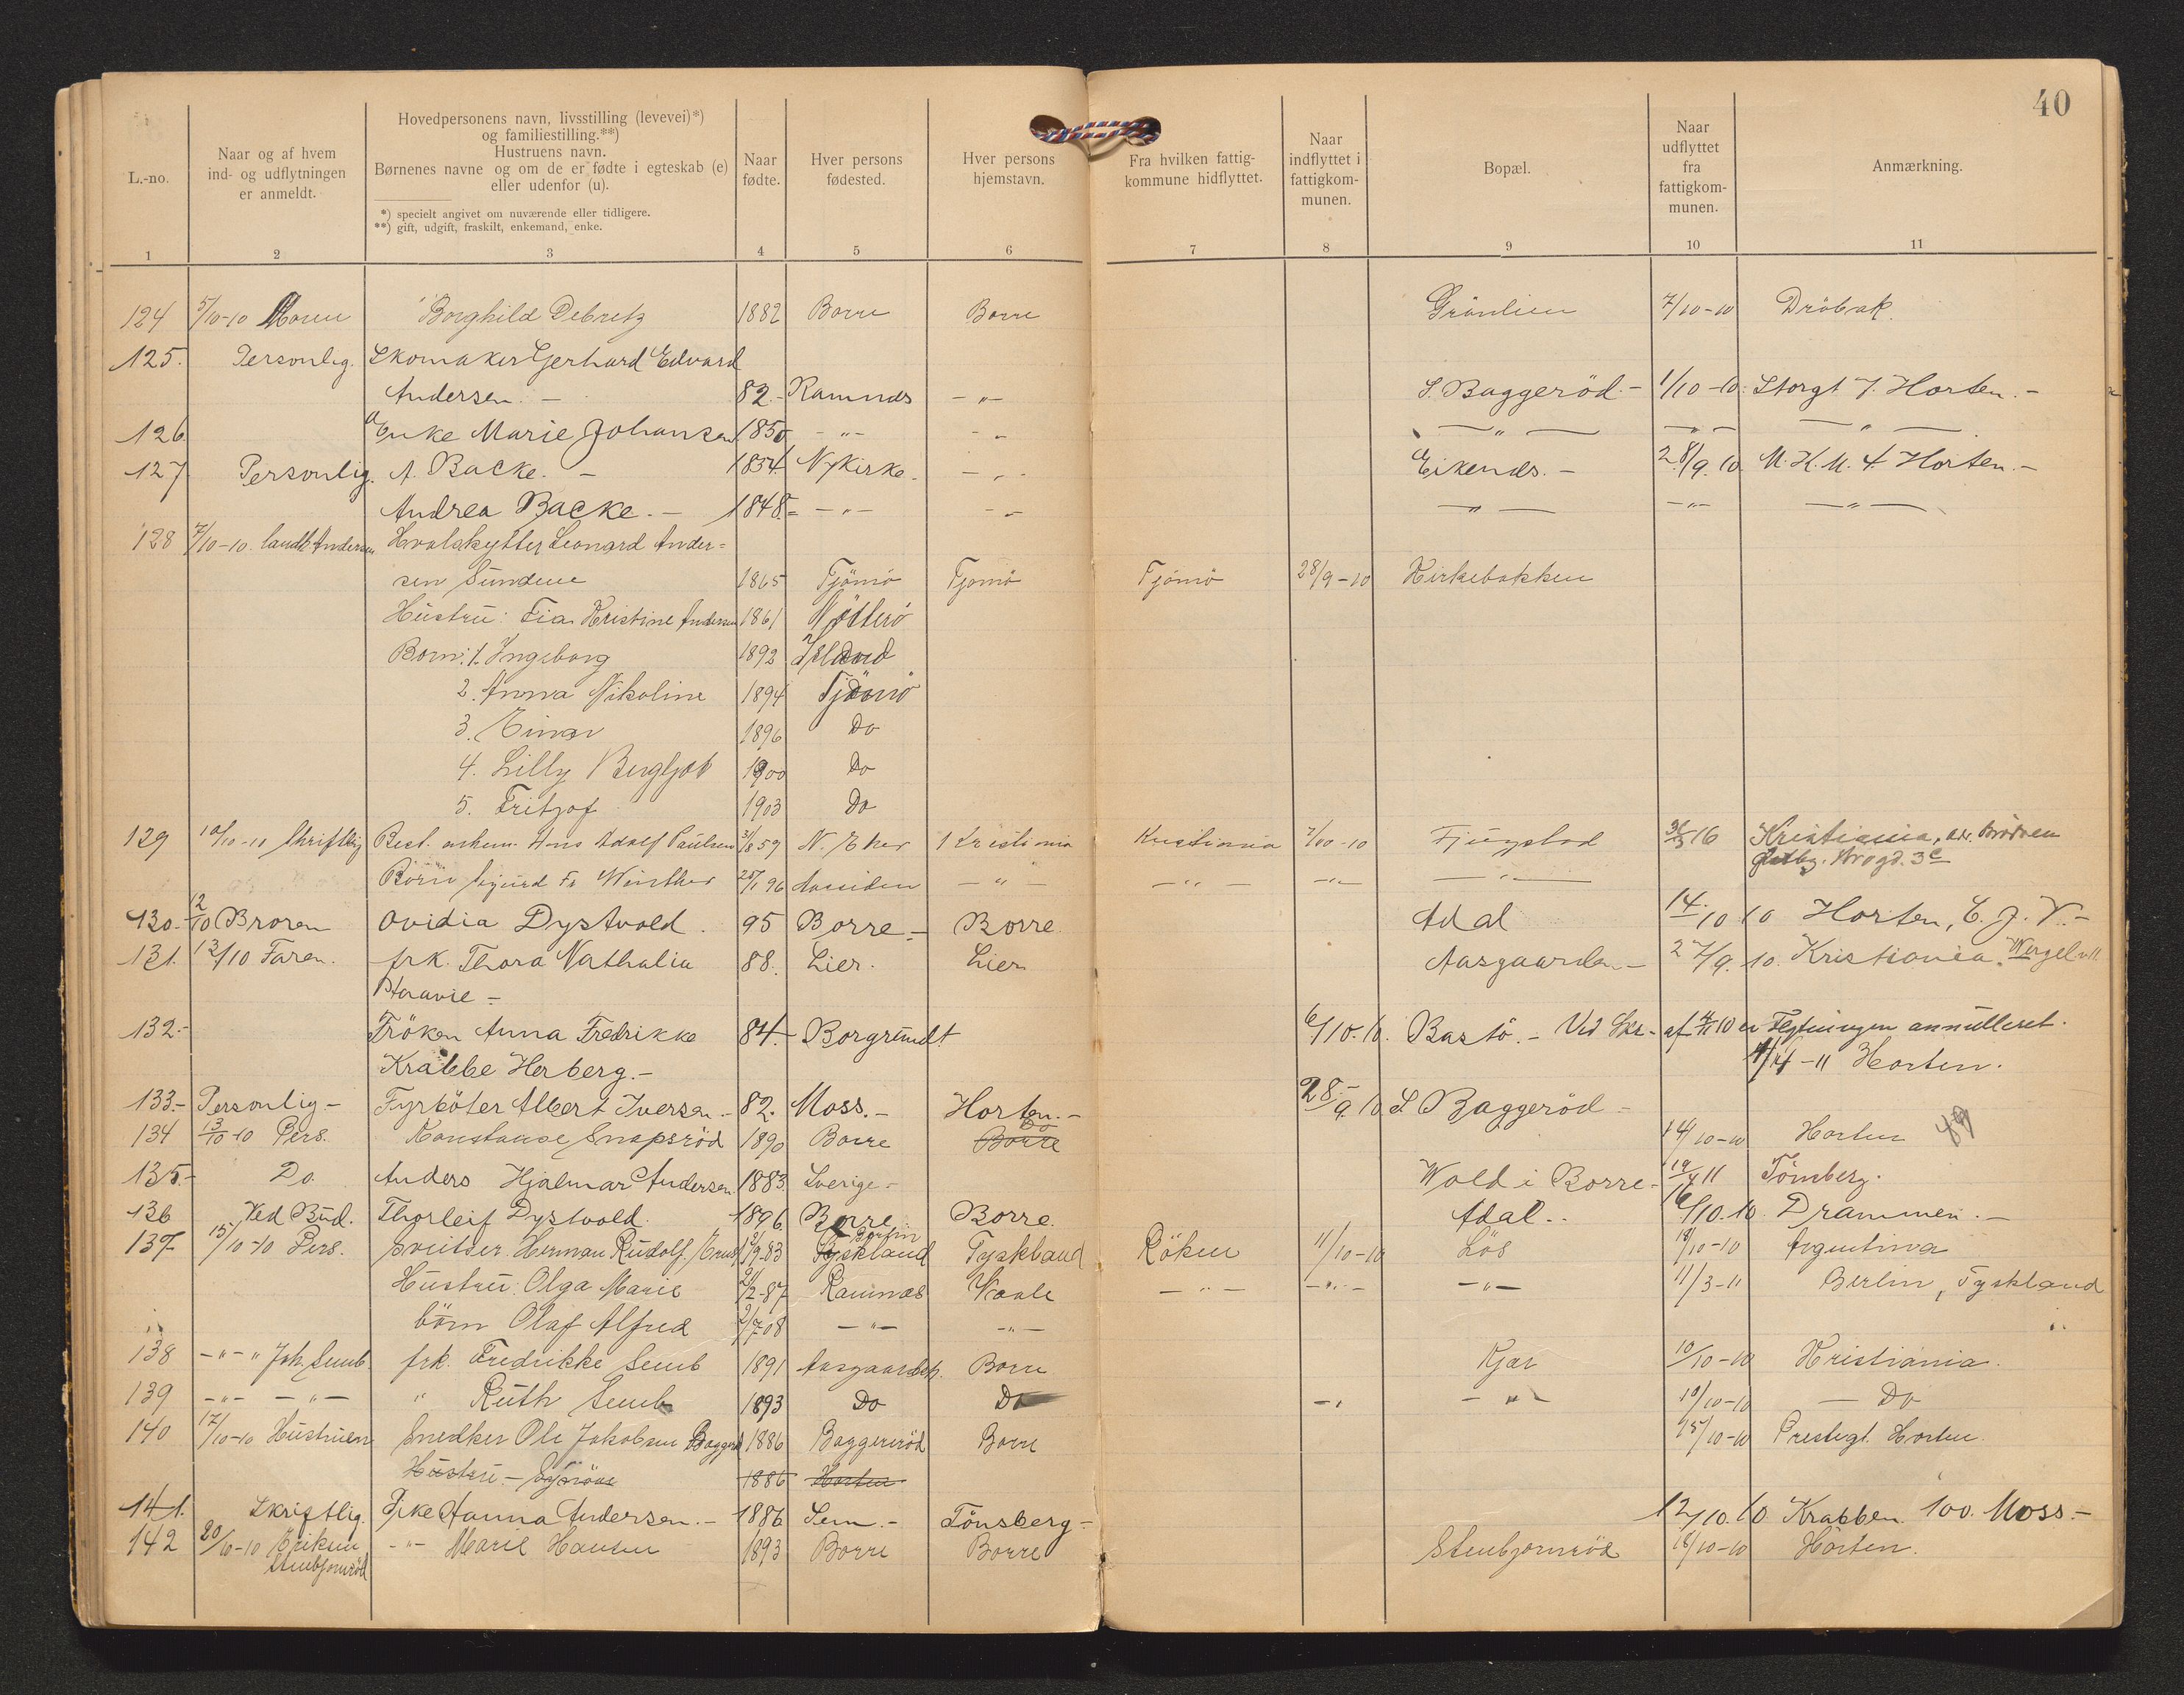 40
L.-no.
Naar og af hvem
ind- og udflytningen
er anmeldt.
Hovedpersonens navn, livsstilling (levevei)*)
og familiestilling.**)
Hustruens navn.
Børnenes navne og om de er fødte i egteskab (e)
eller udenfor (u).
*) specielt angivet om nuværende eller tidligere.
**) gift, udgift, fraskilt, enkemand, enke.
Naar
fødte.
Hver persons
fødested.
Hver persons
hjemstavn.
Fra hvilken fattig-
kommune hidflyttet.
Naar
indflyttet i
fattigkom-
munen.
Bopæl.
Naar
udflyttet
fra
fattigkom-
munen.
Anmærkning.
1 2 3 4 5 6 7 8 9 10 11
124 5/10-10 Moren Borghild Debretz 1882 Borre Borre Grönlien 7/10-10 Dröbak
125. Personlig. Skomaker Gjerhard Edvard
Andersen. - 82.- Ramnds -"- S. Baggeröd.- 1/10-10. Storgt 7. Horten.-
126. Enke Marie Johansen 1850 -"- -"- -"- -"- -"-
127 Personlig. A. Backe. - 1834 Nykirke. -"- Eikends.- 28/9.10. M.K.M. 4 Horten.-
Andrea Backe.- 1848.- -"- -"- -"- -"- -"-
128 7/10-10. landh Andersen Hvalskytter Leonard Ander=
sen Sundene 1865 Tjömö Tjömö Tjömö 28/9-10 Kirkebakken
Hustru: Tia Kristine Andersen 1861 Nötterö
Born: 1. Ingeborg 1892 Island
2. Anna Nikoline 1894 Tjömö
3. Einar 1896 Do
4. Lilly Bergljot 1900 Do
5. Fritjof 1903 Do
129 10/10-10 Skriftlig Best. enkem. Hans Adolf Paulsen 31/8 59 N. Eker Kristiania Kristiania 7/10-10 Fjugstad 16 Kristiania,
3c
Börn Sigurd Fr Winther 25/1 96 Aassiden -"- -"- -"- -"-
130.- 12/10 Broren Ovidia Dystvold. 95 Borre.- Borre. Adal 14/10 10 Horten, C. J. V.-
131. 12/10 Faren. frk. Thora Nathalia 88. Lier. Lier Aasgaarden.- 27/9.10. Kristiania.
Haavie.-
132.- Fröken Anna Fredrikke 84.- Borgrundt 6/10.10. Bastö.- Ved Skr. af 4/11 10 er Flytningen annulleret.
Krabbe Herberg.- 1/4-11 Horten.
133.- Personlig- Fyrböter Albert Iversen.- 82. Moss.- Horten.- 28/9.10 S Baggeröd-
134 13/10-10 Pers. Konstanse Snapsröd 1890 Borre Borre Do 14/10-10 Horten
135.- Do. Anders Hjalmar Andersen. 1883. Sverige- Wold i Borre- 19/4 11 Tönsberg.
136 Ved Bud. Thorleif Dystvold. 1896 Borre Borre. Adal.. 16/10.10. Drammen.-
137 15/10-10 Pers. sveitser. Herman Rudolf Ernst 83 Berlin Tyskland Tyskland Röken 11/10-10 Lös 18/10-10 Argentina
Hustru: Olga Marie 21/2-87 Ramnæs Vaale -"- -"- -"- 11/3-11 Berlin, Tyskland
börn Olaf Alfred 2/7-08 -"- -"- "
138 -"-" Joh. Semb frk. Fredrikke Semb 1891 Aasgaardstr. Borre Kjær 10/10-10 Kristiania.
139 -"- -"- " Ruth Semb 1893 Do Do -" -"- 10/10-10 - Do
140 17/10-10 Hustruen Snedker Ole Jakobsen Baggeröd 1886 Baggeröd Borre 15/10-10 Prestegt. Horten.
Hustru- 1886 Horten
141. Skriftlig. Pike Hanna Andersen.- 1886 Sem.- Tönsberg- 12/10.10 Krabben 100. Moss.-
142 20/10-10 Eriksen -"- Marie Hansen 1893 Borre Borre Stenbjornröd 16/10-10 Horten.
Stenbjornröd